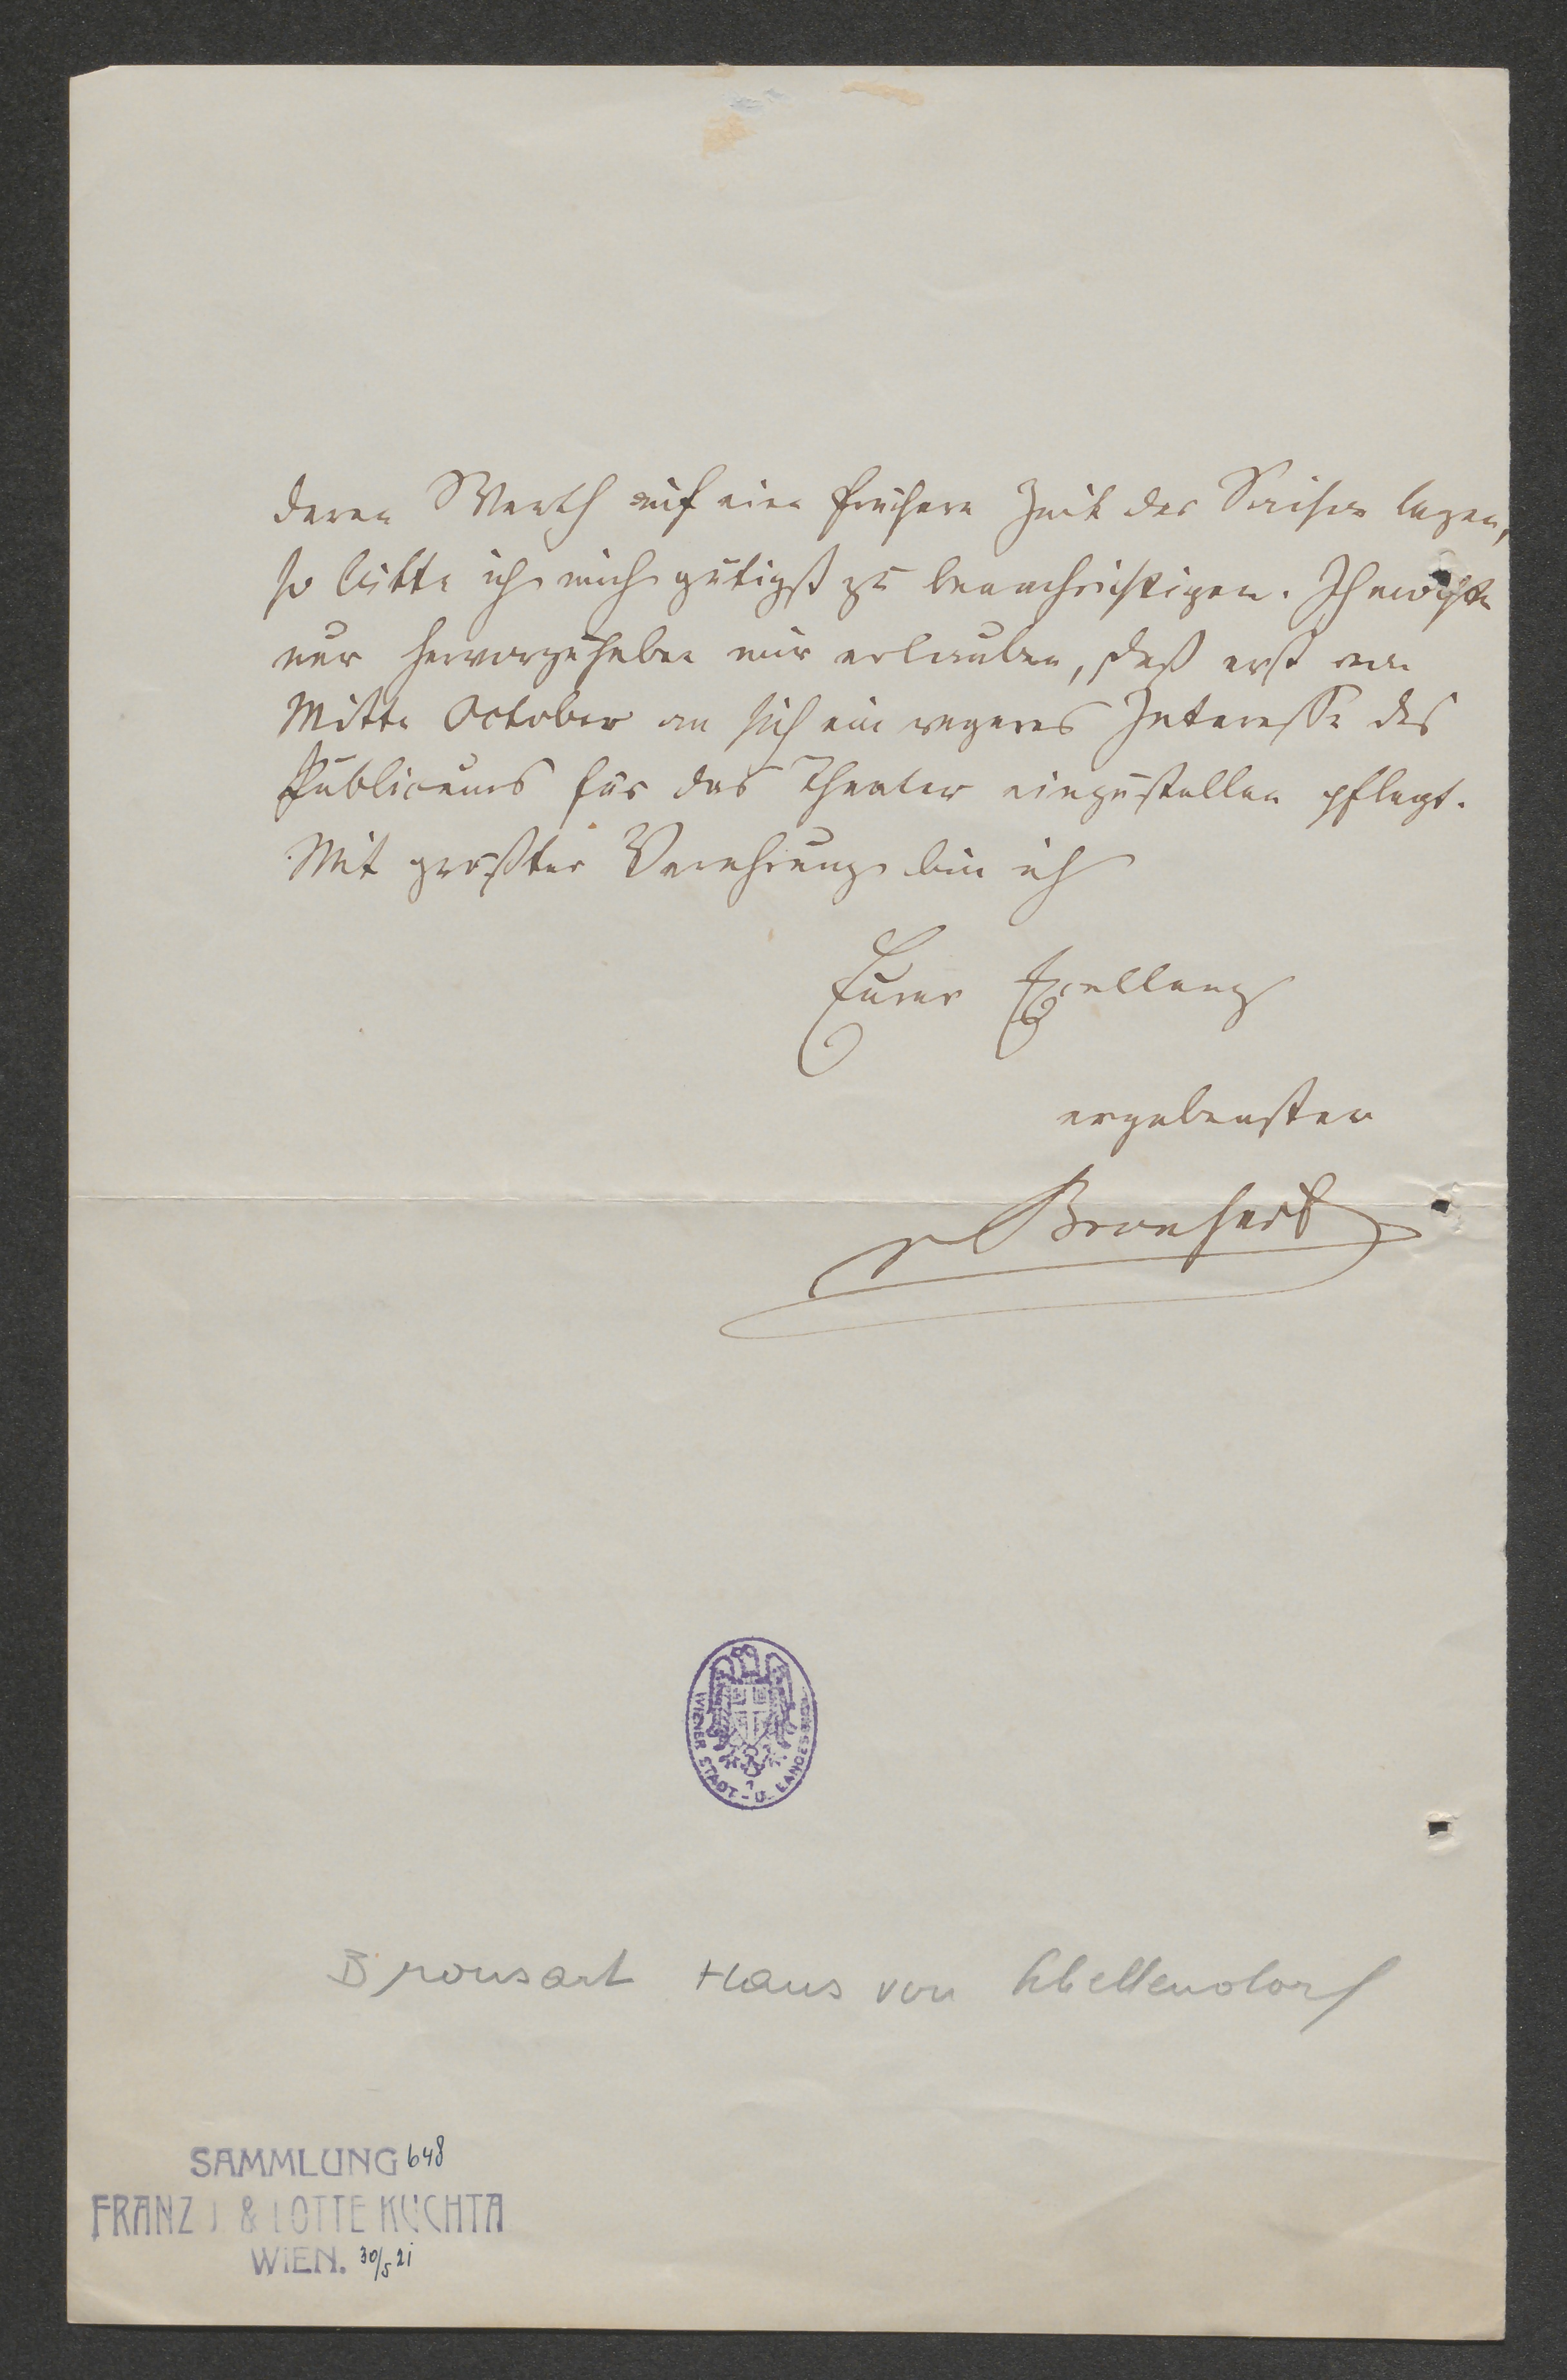 deren Werth auf eine frühere Zeit der Saison legen,
so bitte ich mich gütigst zu benachrichtigen. Ich möchte
nur hervorzuheben mir erlauben, daß erst von
Mitte October an sich ein regeres Interesse des
Publicums für das Theater einzustellen pflegt.
Mit größter Verehrung bin ich
Eurer Excellenz
ergebenster
v Bronsart
WIENER STADT- U. LANDESBIBL.
Bronsart Hans von Schellendorf
SAMMLUNG 648
FRANZ J. & LOTTE KUCHTA
WIEN. 30/5 21